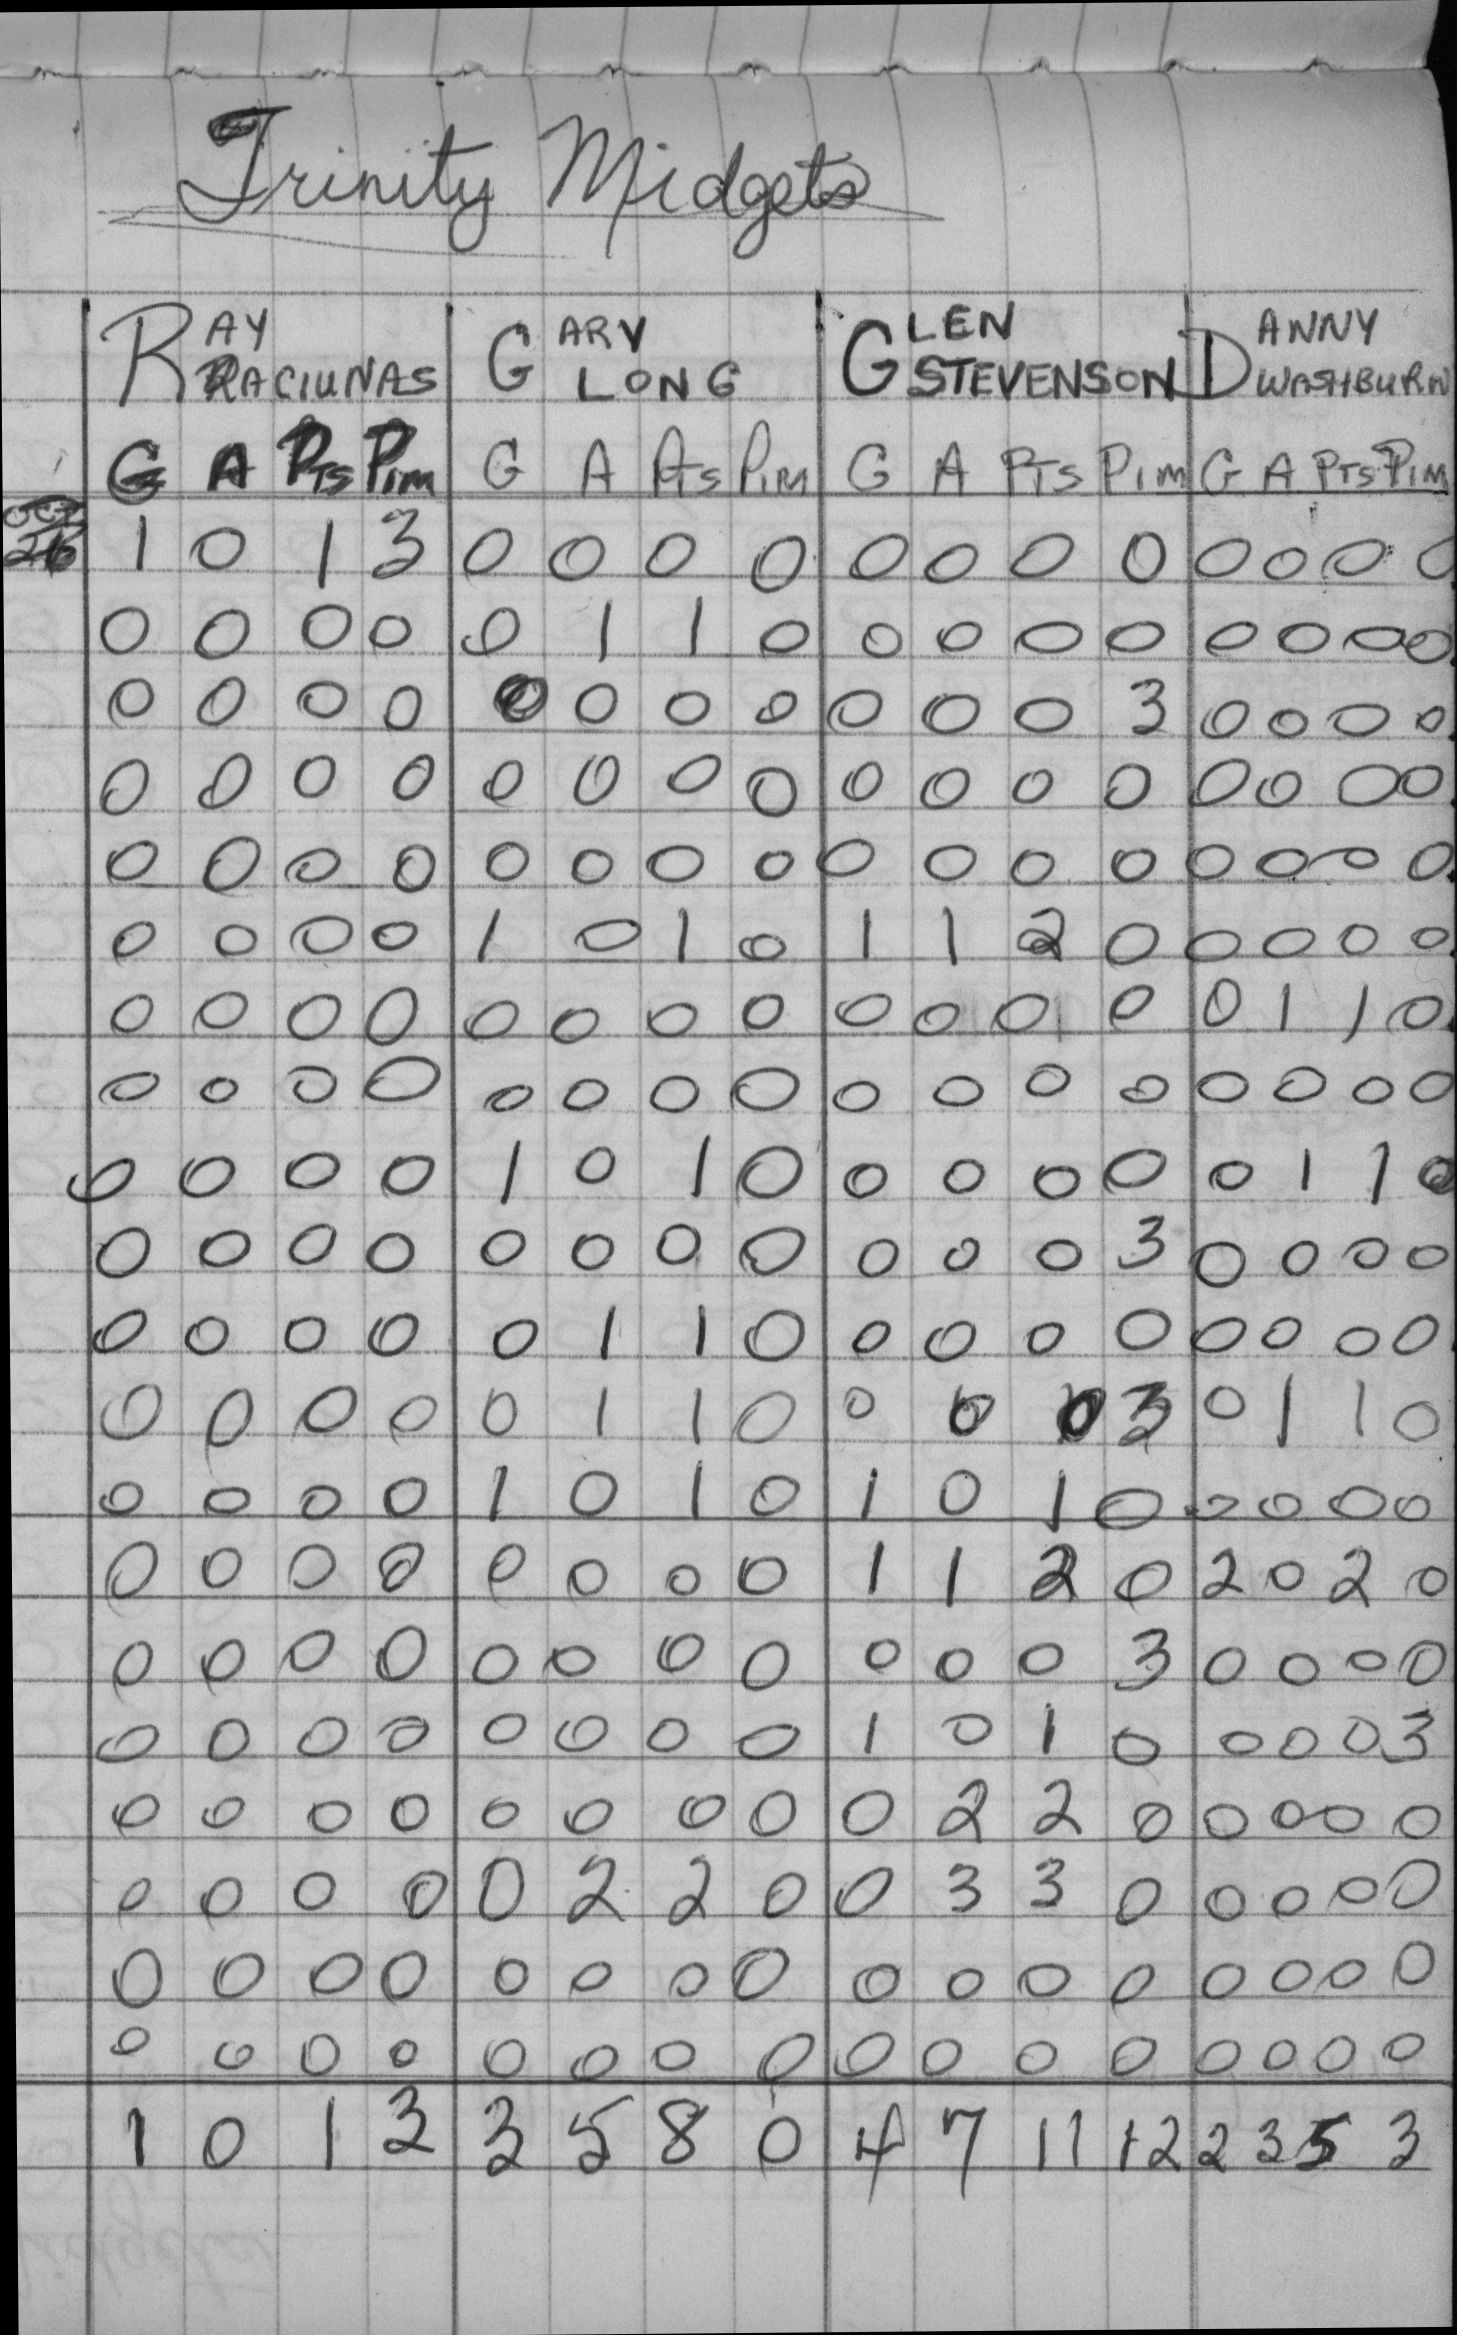 Trinity Midgets
RAY RACIUNAS GARY LONG GLEN STEVENSON DANNY WASHBURN
G A PTS PIM G A PTS PIM G A PTS PIM G A PTS PIM
OCT 26 1 0 1 3 0 0 0 0 0 0 0 0 0 0 0 0
0 0 0 0 0 1 1 0 0 0 0 0 0 0 0 0
0 0 0 0 0 0 0 0 0 0 0 3 0 0 0 0
0 0 0 0 0 0 0 0 0 0 0 0 0 0 0 0
0 0 0 0 0 0 0 0 0 0 0 0 0 0 0 0
0 0 0 0 1 0 1 0 1 1 2 0 0 0 0 0
0 0 0 0 0 0 0 0 0 0 0 0 0 1 1 0
0 0 0 0 0 0 0 0 0 0 0 0 0 0 0 0
0 0 0 0 1 0 1 0 0 0 0 0 0 1 1 0
0 0 0 0 0 0 0 0 0 0 0 3 0 0 0 0
0 0 0 0 0 1 1 0 0 0 0 0 0 0 0 0
0 0 0 0 0 1 1 0 0 0 0 3 0 1 1 0
0 0 0 0 1 0 1 0 1 0 1 0 0 0 0 0
0 0 0 0 0 0 0 0 1 1 2 0 2 0 2 0
0 0 0 0 0 0 0 0 0 0 0 3 0 0 0 0
0 0 0 0 0 0 0 0 1 0 1 0 0 0 0 3
0 0 0 0 0 0 0 0 0 2 2 0 0 0 0 0
0 0 0 0 0 2 2 0 0 3 3 0 0 0 0 0
0 0 0 0 0 0 0 0 0 0 0 0 0 0 0 0
0 0 0 0 0 0 0 0 0 0 0 0 0 0 0 0
1 0 1 3 3 5 8 0 4 7 11 12 2 3 5 3